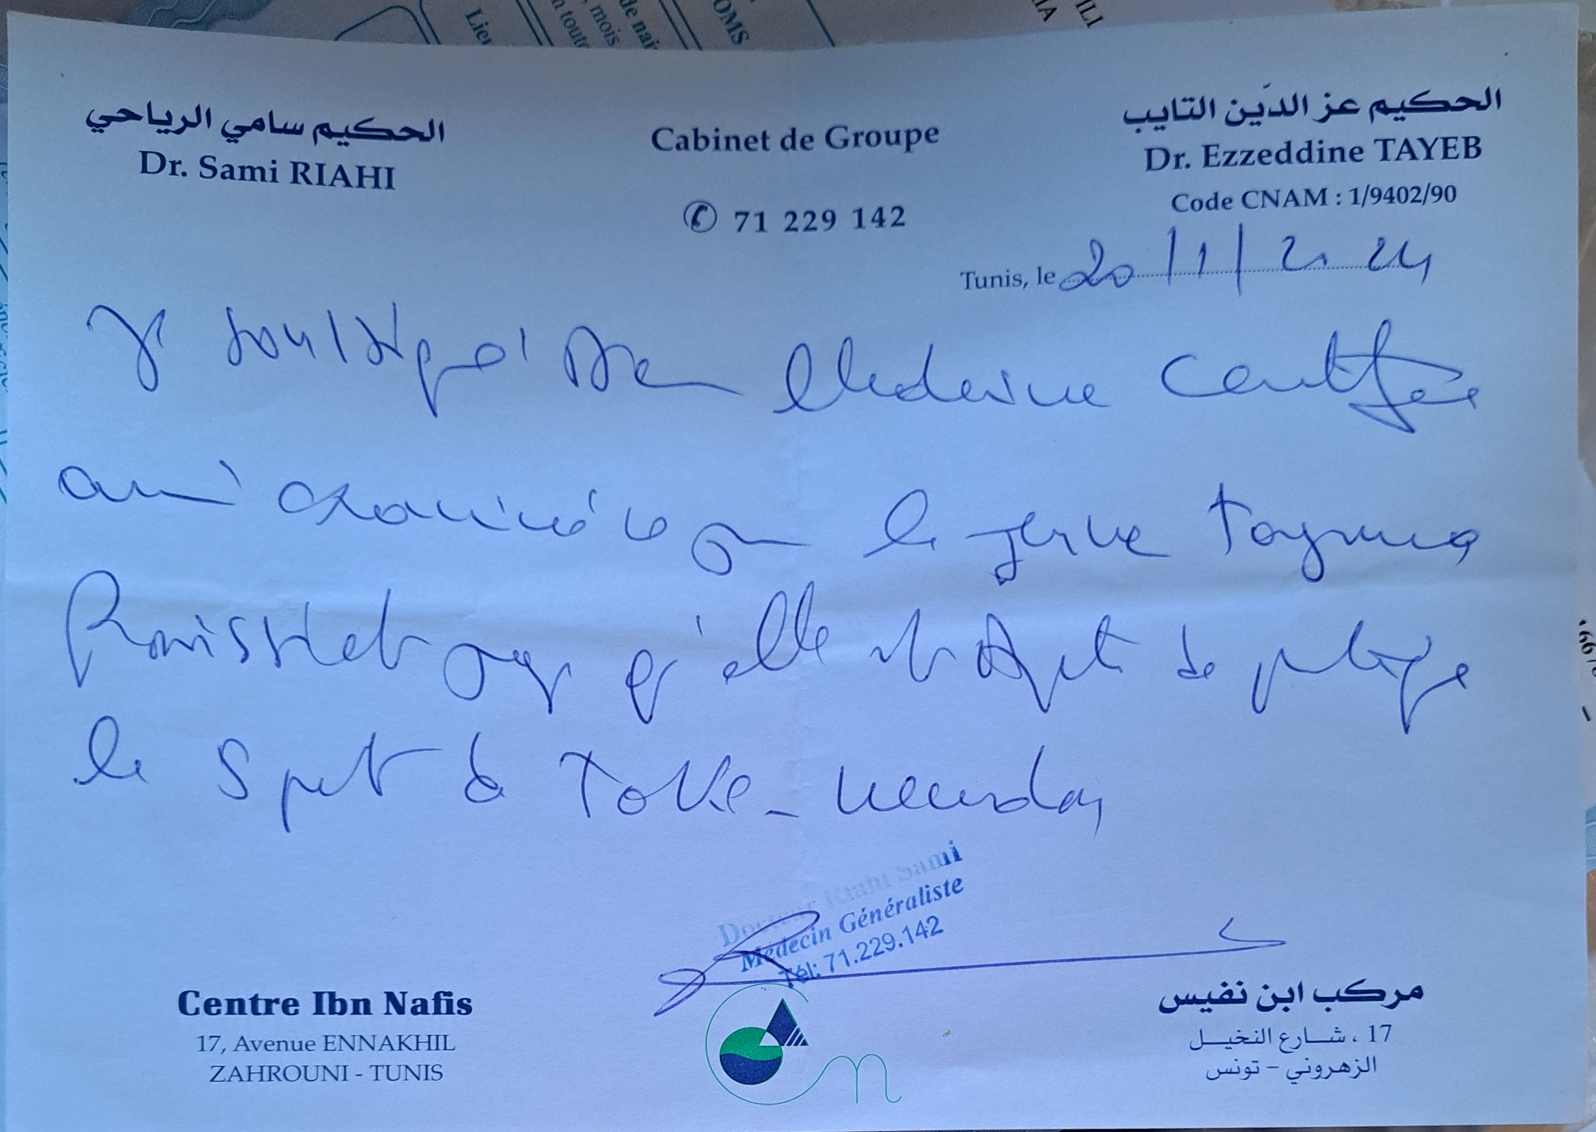 Lieu
n toute
mois
de nai
OMS
IA
ILI
الحكيم سامي الرياحي
Dr. Sami RIAHI
Cabinet de Groupe
✆ 71 229 142
الحكيم عز الدّين التايب
Dr. Ezzeddine TAYEB
Code CNAM : 1/9402/90
Tunis, le 20/1/2024
Je soussigné Dr en Médecine certifie
avoir examiné ce jour le jeune
qu'elle est apte de pratiquer
le sport de
Docteur Riahi Sami
Médecin Généraliste
Tél: 71.229.142
Centre Ibn Nafis
17, Avenue ENNAKHIL
ZAHROUNI - TUNIS
مركب ابن نفيس
17 ، شارع النخيل
الزهروني - تونس